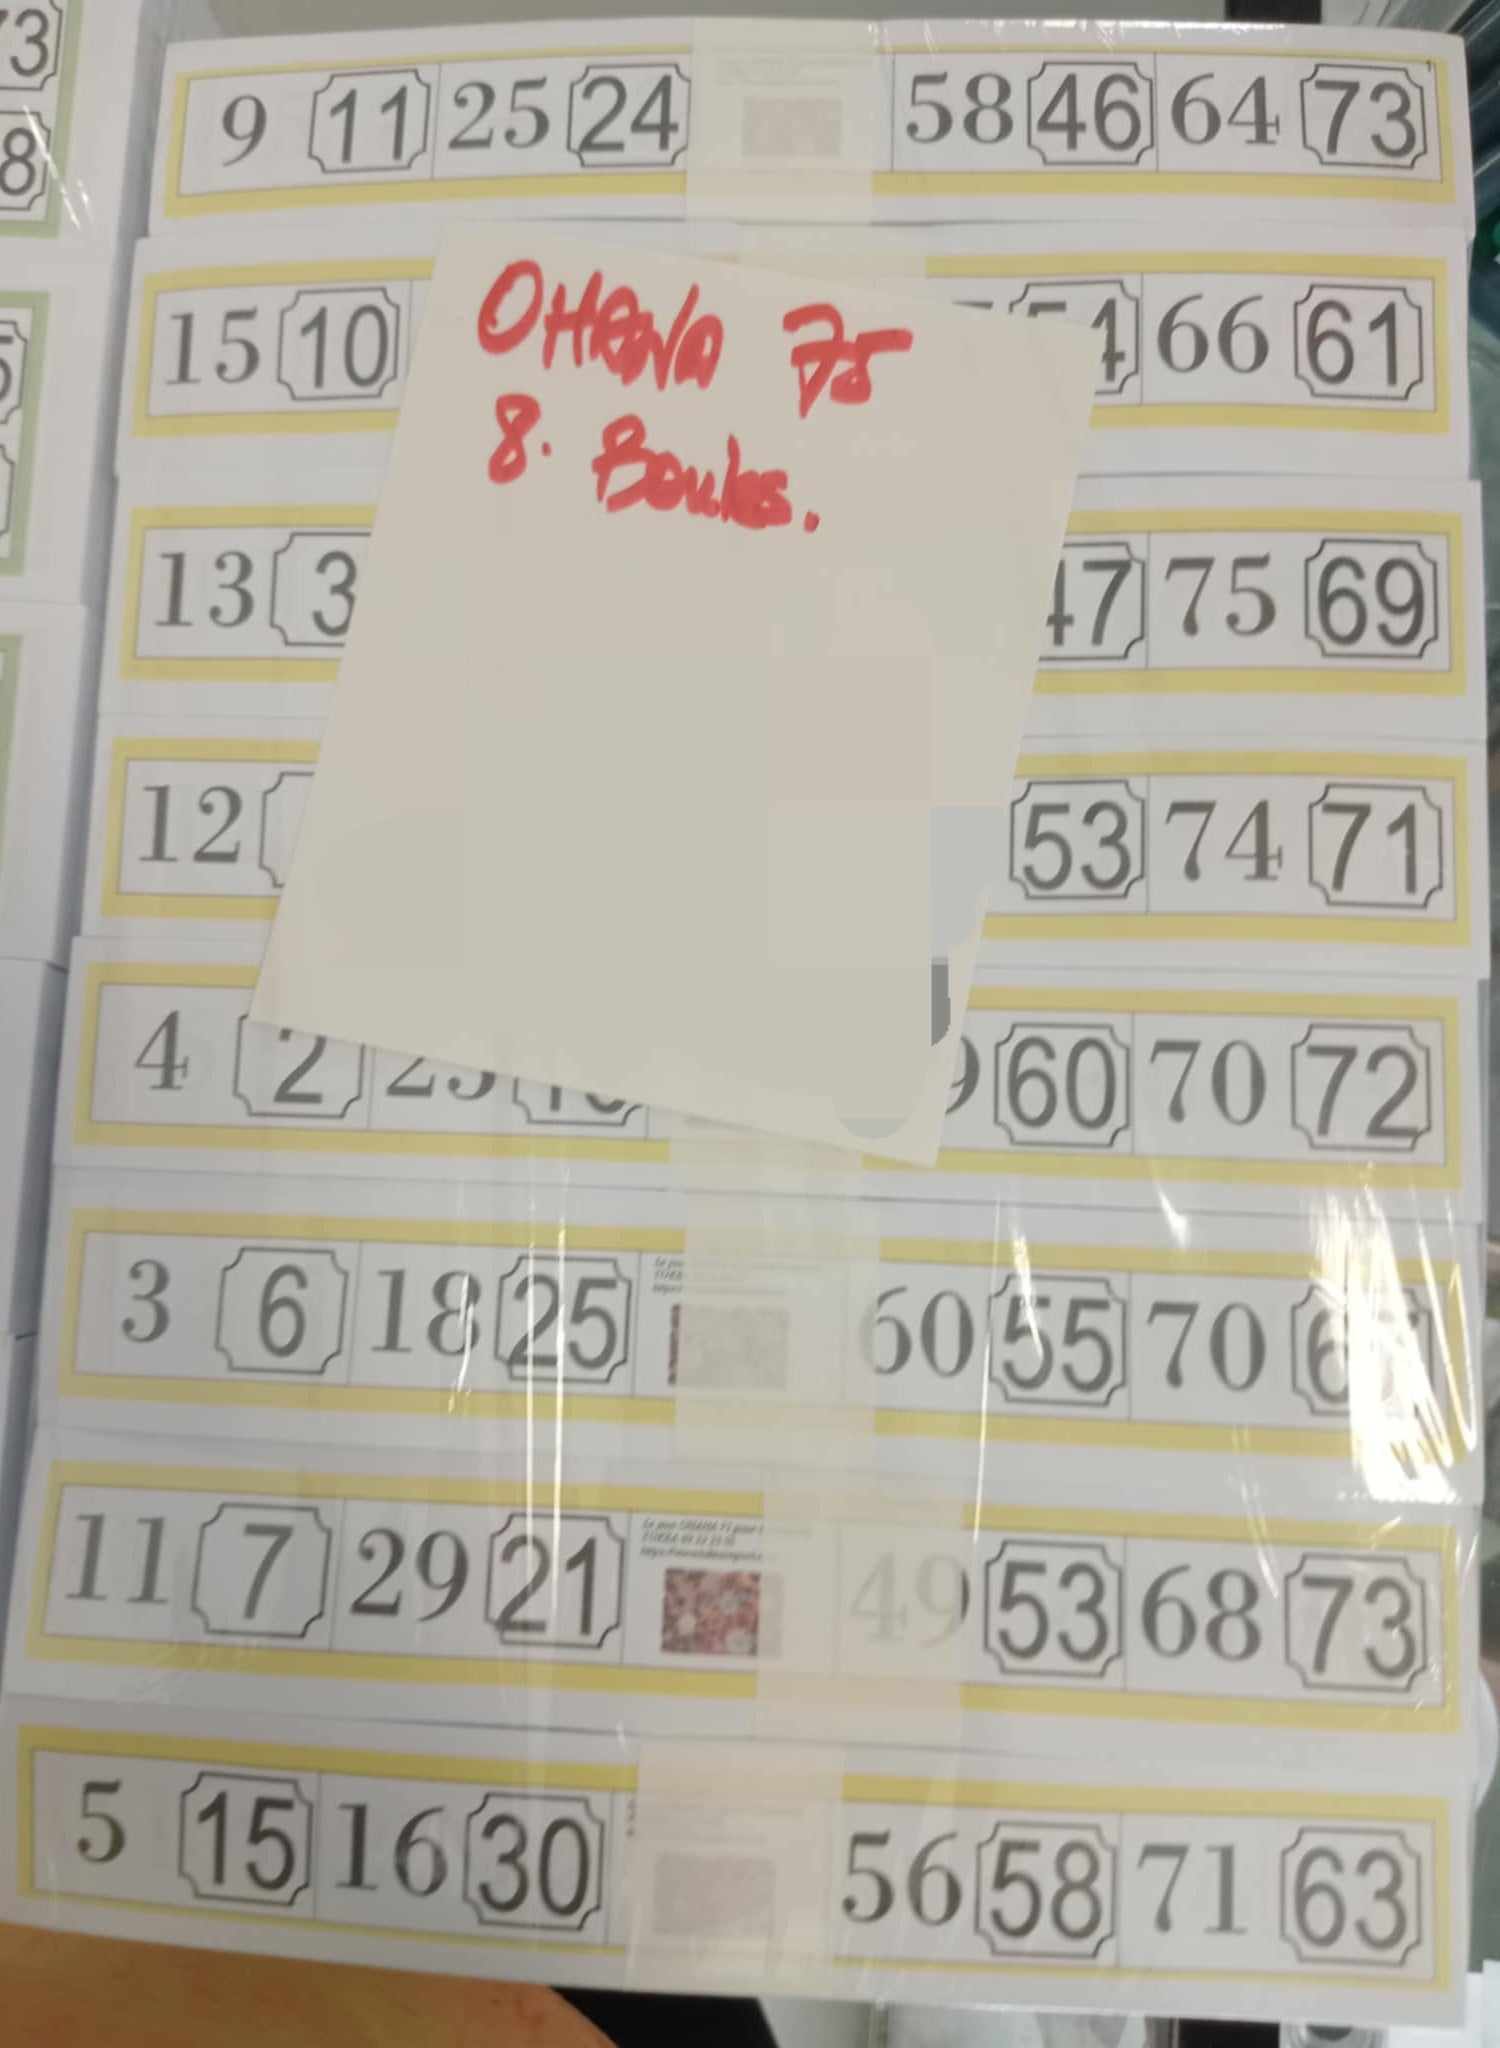 9 11 25 24 58 46 64 73
OHANA 75
8. Boules.
15 10 66 61
13 3 47 75 69
12 53 74 71
4 2 60 70 72
3 6 18 25 60 55 70
11 7 29 21 49 53 68 73
5 15 16 30 56 58 71 63